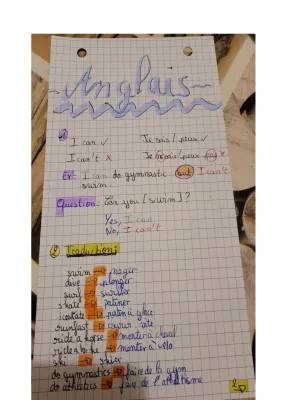 Anglais
1)
I can ✓ Je sais / peux ✓
I can't x Je ne sais / peux pas x
Ex: I can do gymnastic but I can't
swim.
Question: Can you [swim]?
Yes, I can
No, I can't
2) Traduction:
swim → nager
dive → plonger
surf → surfer
skate → patiner
iceskate → patin à glace
run fast → courir vite
ride a horse → monter à cheval
ride a bike → monter à vélo
ski → skier
do gymnastics → faire de la gym
do athletics → faire de l'athlétisme